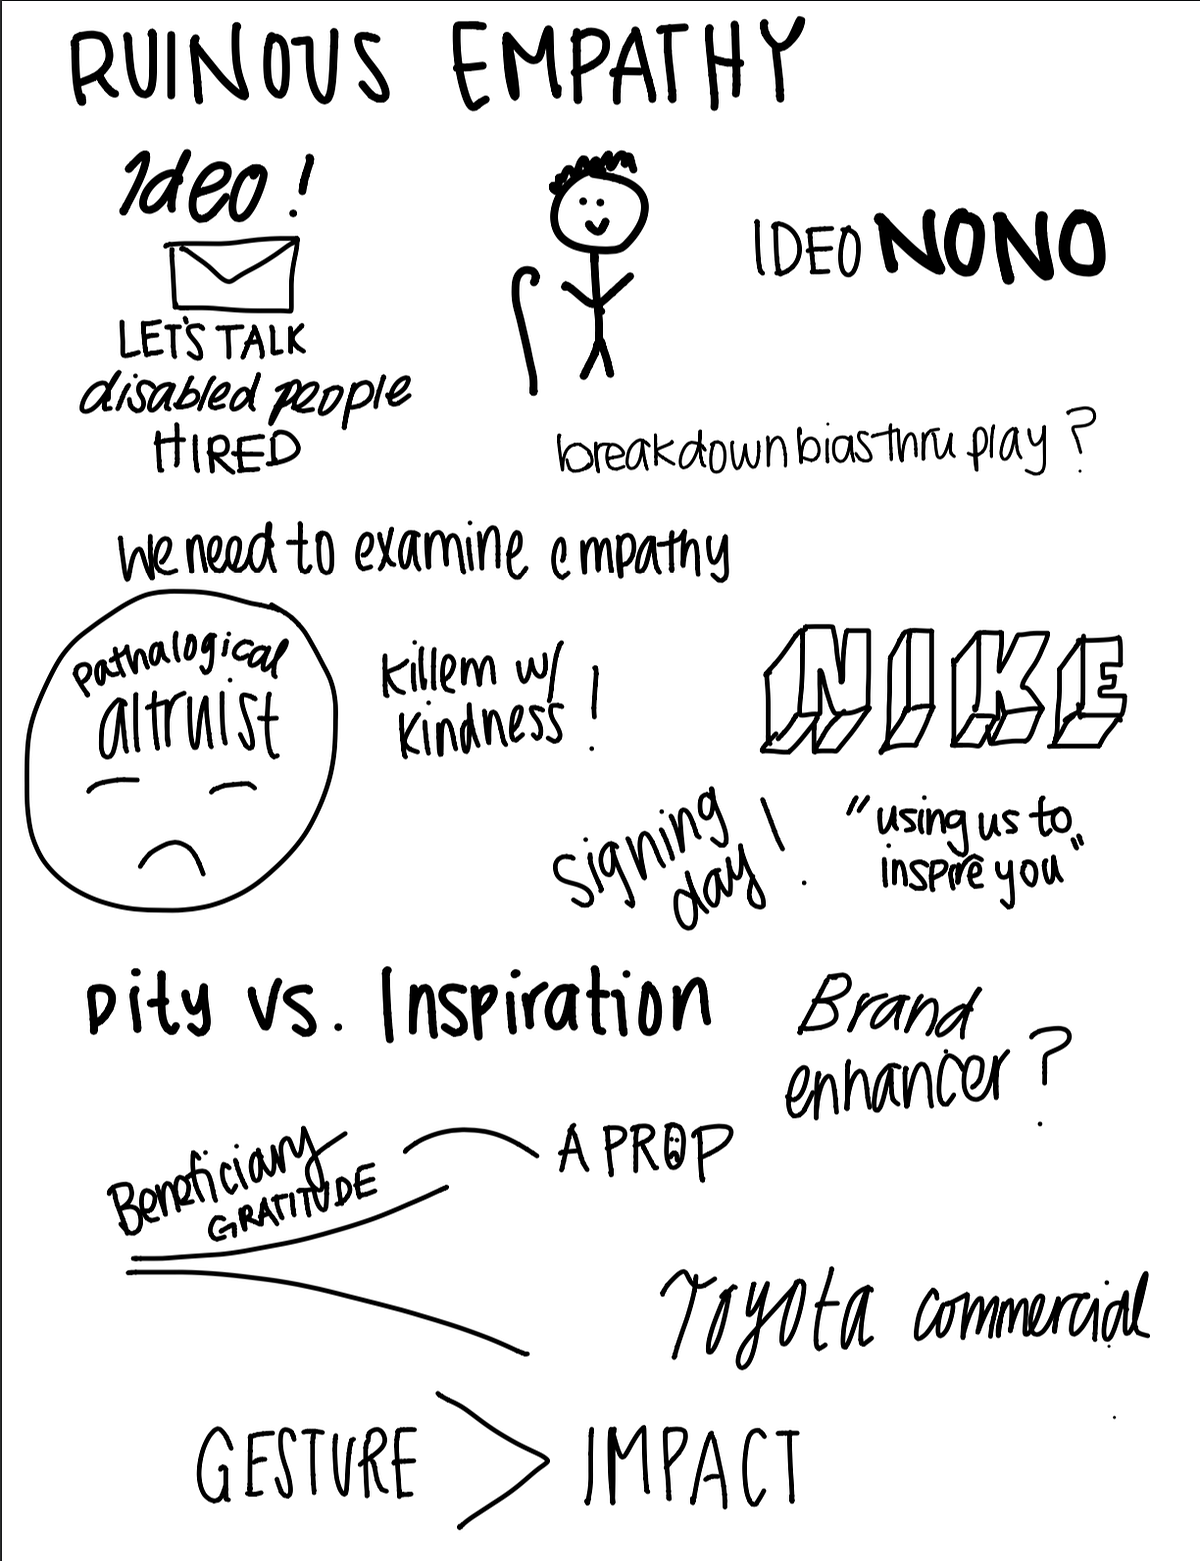 RUINOUS EMPATHY
Ideo!
IDEO NONO
LET'S TALK
disabled people
HIRED
breakdown bias thru play?
We need to examine empathy
pathalogical
altruist
Killem w/
kindness!
NIKE
signing
day!
"using us to
inspire you"
Pity vs. Inspiration
Brand
enhancer?
Beneficiary
GRATITUDE
A PROP
Toyota commercial
GESTURE > IMPACT